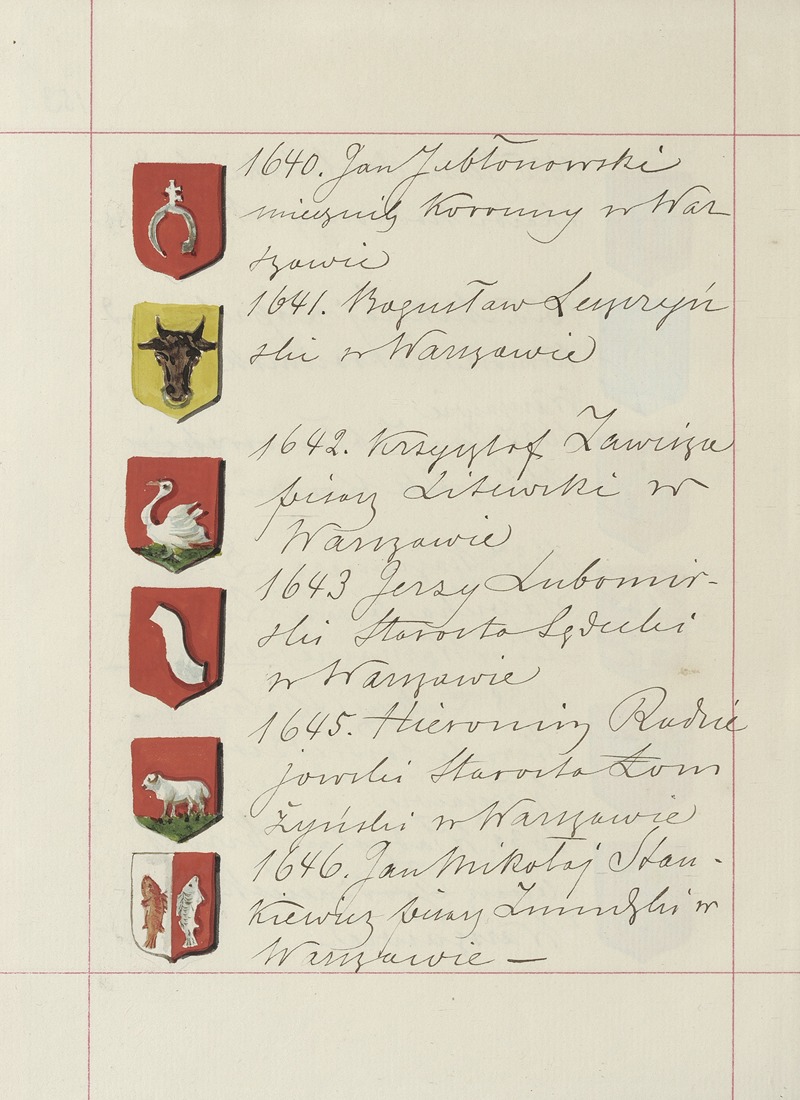 1640. Jan Jabłonowski
miecznik Koronny w War
szawie
1641. Bogusław Leszczyń
ski w Warszawie
1642. Krzysztof Zawisza
pisarz Litewski w
Warszawie
1643 Jerzy Lubomir-
ski Starosta Sądecki
w Warszawie
1645. Hieronim Radzie
jowski Starosta Łom
żyński w Warszawie
1646. Jan Mikołaj Stan-
kiewicz pisarz Żmudzki w
Warszawie —